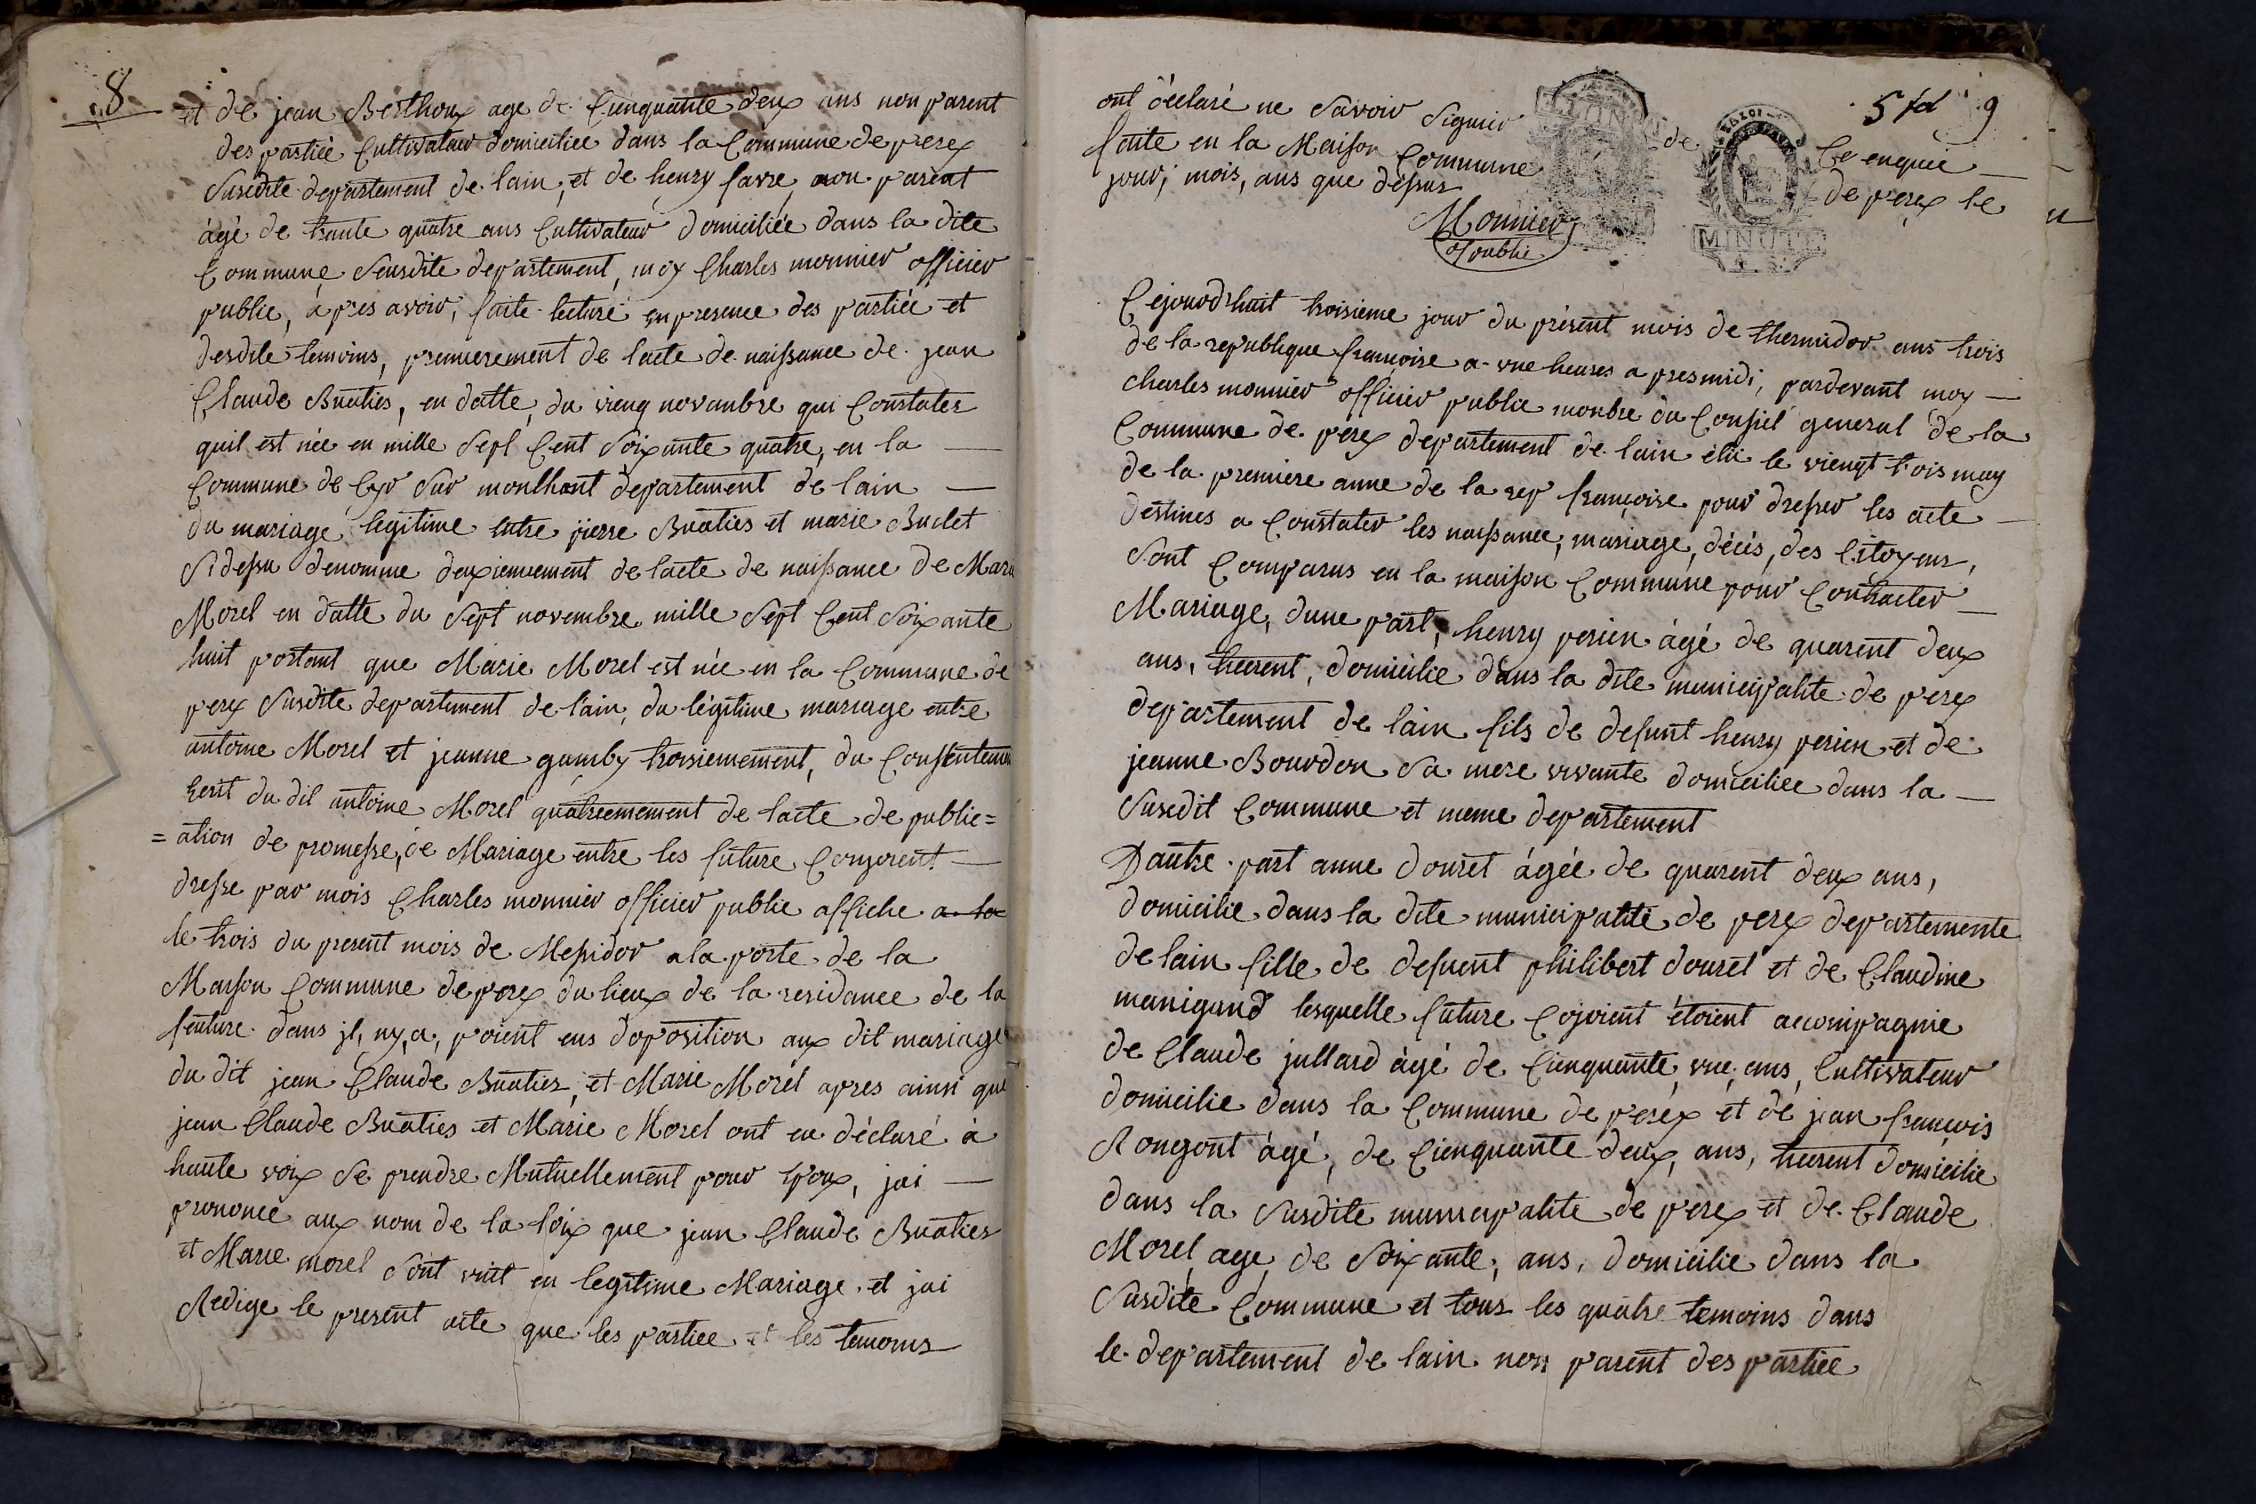 8
et de jean Berthoux age de Cinquante deux ans non parent
des partiée Cultivateur domiciliée dans la Commune de perex
Susdite departement de lain, et de henry favre, non parent
âgé de trante quatre ans Cultivateur domiciliée dans la dite
Commune Seusdite departement, moy Charles monnier officier
public, à pres avoir, faite lecture en presence des partiée et
desdite temoins, premierement de lacte de naissance de jean
Claude Buatier, en datte, du vieng novanbre qui Constater
quil est née en mille Sept Cent Soixante quatre, en la
Commune de Cyr Sur monthont departement de lain
du mariage legitime entre pierre Buatier et marie Buclet
Sidessu denomme deuxiemement de lacte de naissance de Mari
Morel en datte du Sept novembre mille Sept Cent Soixante
huit portant que Marie Morel est née en la Commune de
perex Susdite departement de l'ain, du légitime mariage entre
antoine Morel et jeanne gamby troisiemement, du Consentemen
Ecrit du dit antoine Morel quatreiemement de lacte de public=
=ation de promesse, de Mariage entre les future Conjoient
dresse par mois Charles monnier officier public affiche a la
le trois du present mois de Messidor a la porte de la
Maison Commune de perex du lieux de la residance de la
feuture dans jl, ny, a, poient eus doposition aux dit mariage
du dit jean Claude Buatier, et Marie Morel apres ainsi que
jean Claude Buatier et Marie Morel ont eu déclaré à
haute voix Se prendre Mutuellement pour Epoux, jai
prononcé aux nom de la loix que jean Claude Buatier
et Marie morel Sont unit en legitime Mariage, et jai
Redige le present acte que les partiee et les temoins
5 fd 9
ont déclaré ne Savoir Signier de Ce enquie
faite en la Maison Commune de perex le
jour, mois, ans que dessus
Monnier
of public
MINUTE
Cejourdhuit troisieme jour du présent mois de thermidor ans trois
de la republique francoise a une heures a presmidi, pardevant moy
charles monnier officier public monbre du Consiel general de la
Commune de perex departement de lain élü le viengt trois may
de la premiere anne de la rep françoise pour dresser les acte
destines a Constater les naissance, mariage, décés, des Citoyens,
Sont Comparus en la maison Commune pour Contracter
Mariage, dune part, henry perien âgé de quarent deux
ans, domicilie dans la dite municipalite de perex
departement de lain fils de defunt henry perien et de
jeanne Bourdon Sa mere vivante domiciliee dans la
Susedit Commune et meme departement
Dautre part anne douret âgée de quarent deux ans,
domicilie dans la dite municipatité de perex departemente
de lain fille de defuent philibert douret et de Claudine
manigand lesquelle future Cojoient étoient accompagnie
de Claude jullard âgé de Cienquante, une, ans, Cultivateur
domicilie dans la Commune de perex et de jean françois
Rongont âgé, de Cienquante deux, ans, domicilie
dans la Susdite municipalite de perex et de Claude
Morel, age, de Soixante, ans, domicilie dans la
Susdite Commune et tous les quatre temoins dans
le departement de lain non parent des partiée